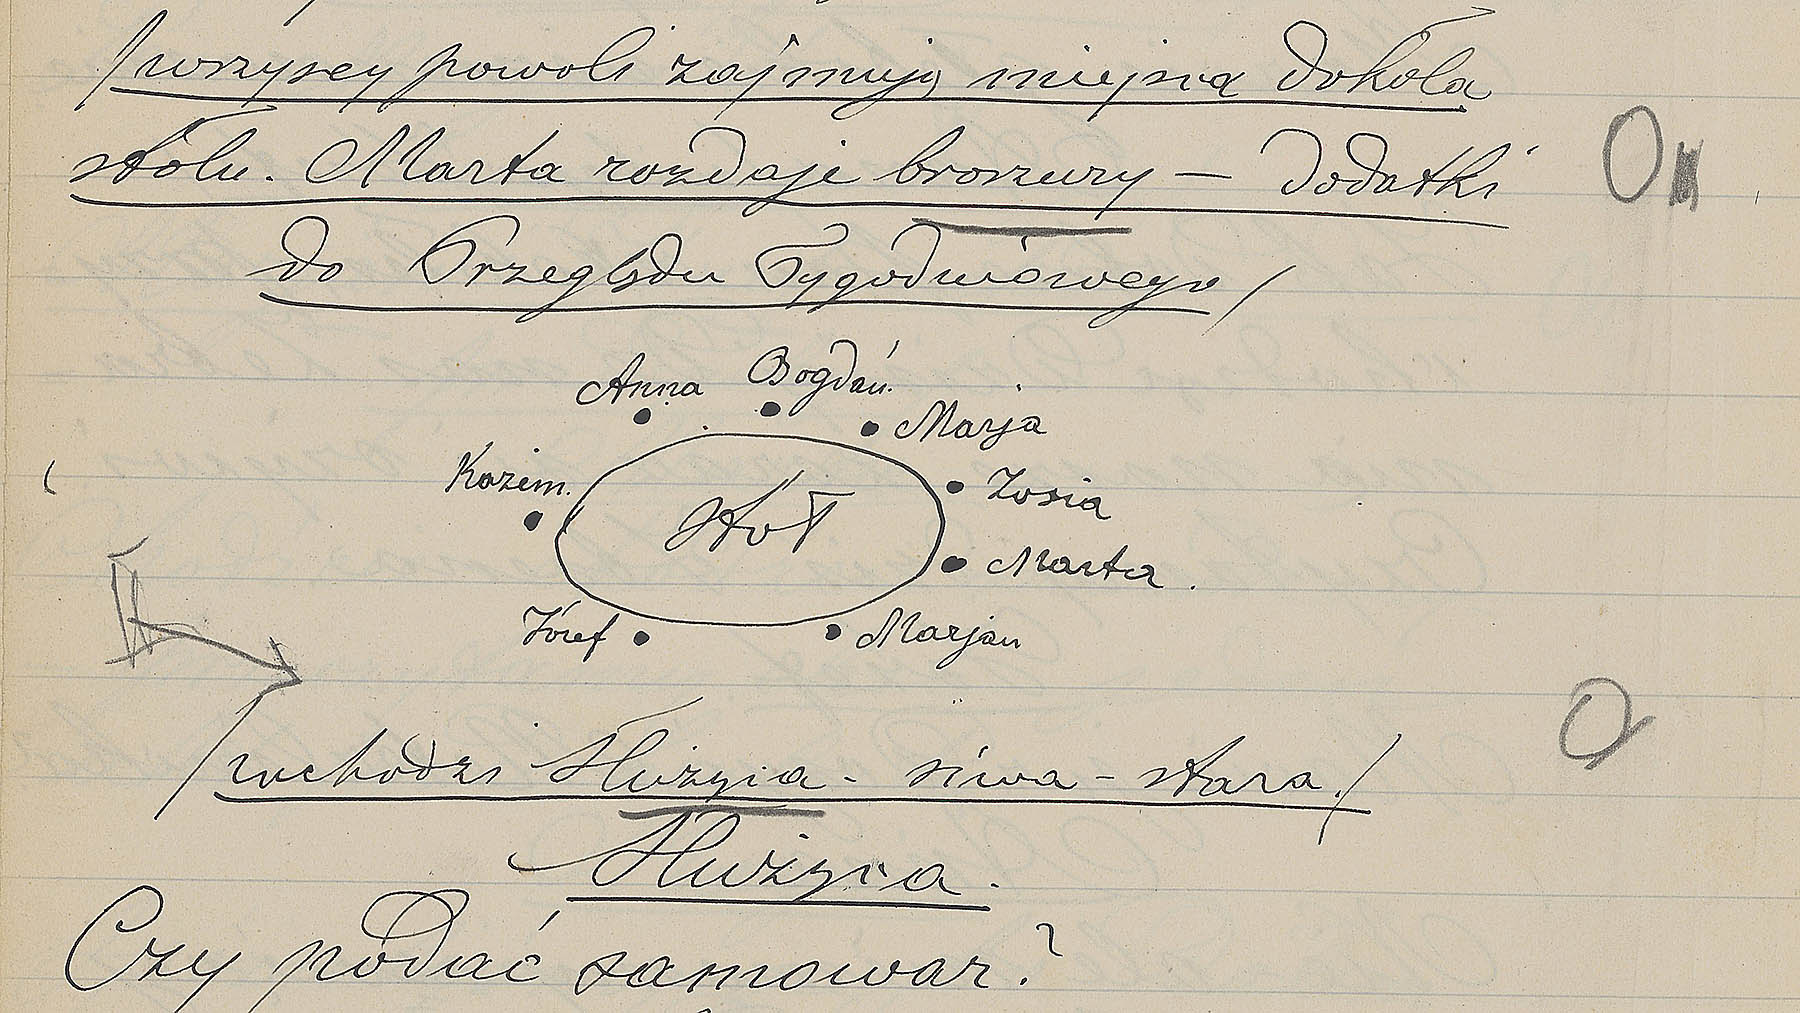 /wszyscy powoli zajmują miejsca dokoła
stołu. Marta rozdaje broszury — dodatki
do Przeglądu Tygodniowego/
Anna Bogdan.
Marja
Kazim. Zosia
Stół
Marta.
Józef Marjan
/wchodzi Służąca - siwa - stara./
Służąca.
Czy podać samowar?